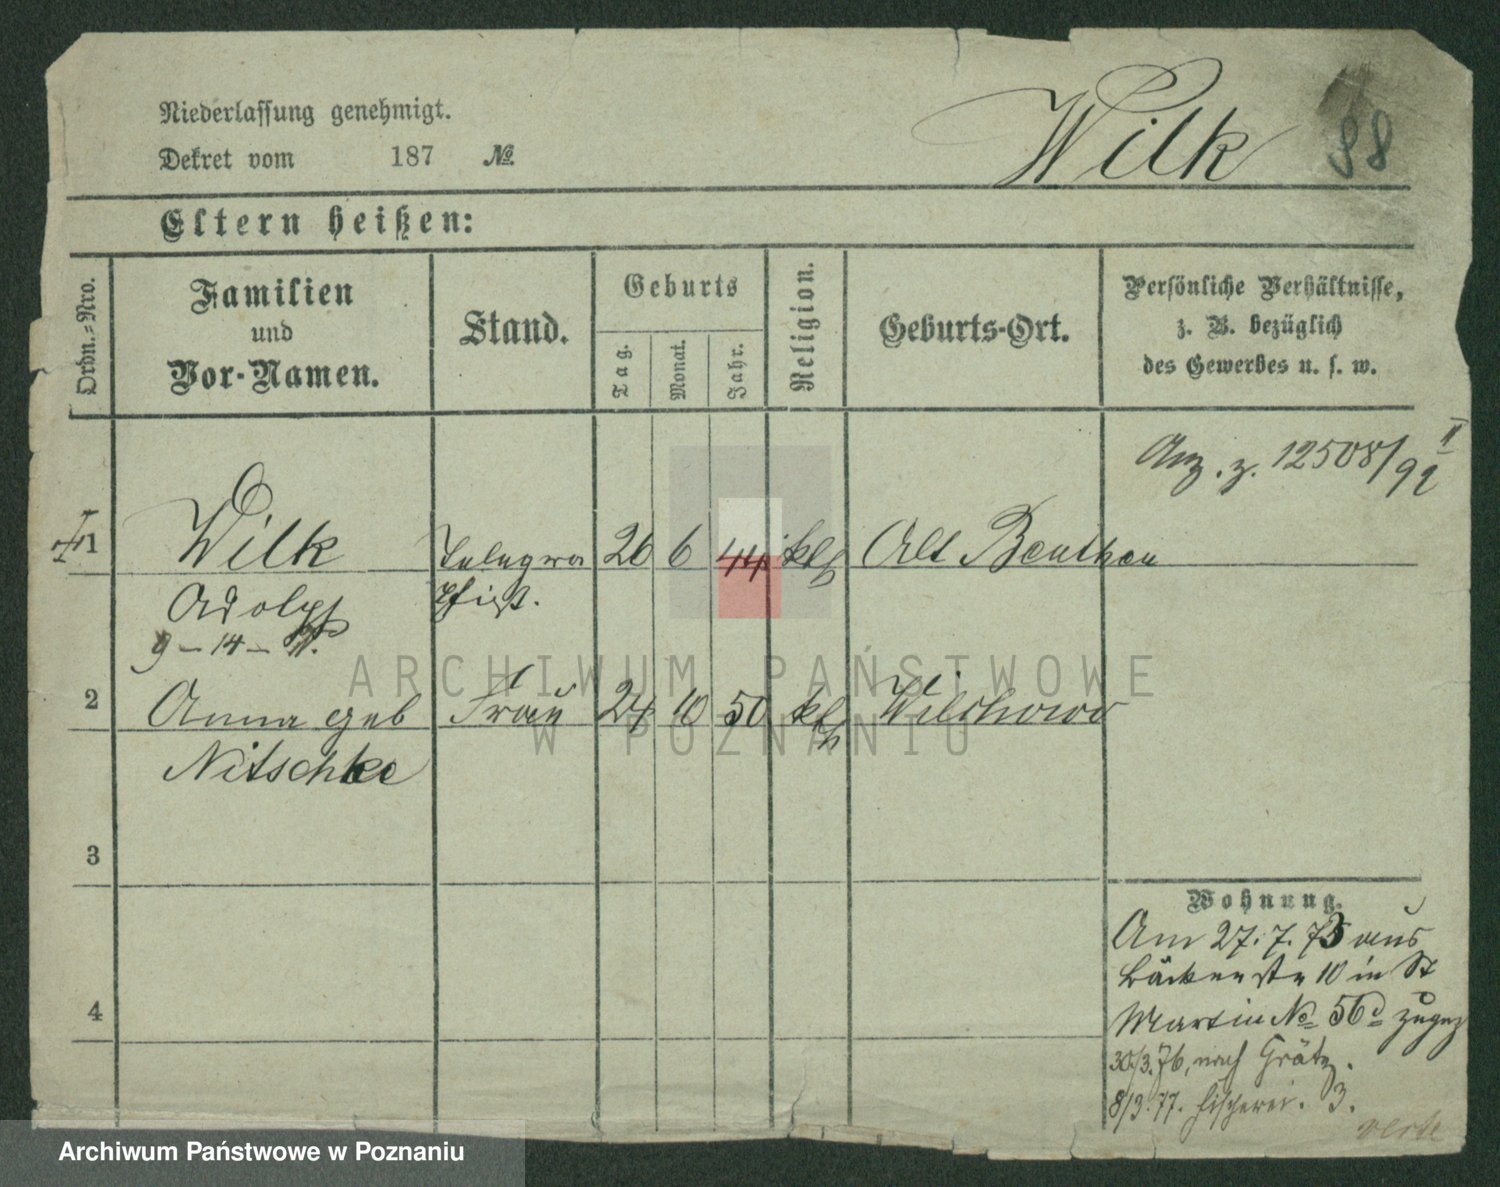 Niederlassung genehmigt.
Dekret vom 187 №
Wilk 98
Eltern heißen:
Ordn.-Nro.
Familien
und
Vor-Namen.
Stand.
Geburts
Tag.
Monat.
Jahr.
Religion.
Geburts-Ort.
Persönliche Verhältnisse,
z. B. bezüglich
des Gewerbes u. s. w.
Anz. z. 12508/92 II
1 Wilk Telegra 26 6 44 kth Alt Beuthen
Adolph phist.
9 – 14 –
2 Anna geb Frau 24 10 50 kth Wilchowo
Nitschke
3
4
Wohnung.
Am 27. 7. 73 aus
Bäckerstr 10 in St
Martin No 56d zugez
30/3. 76, nach Grätz.
8/3. 77. Fischerei. 3.
verte
ARCHIWUM PAŃSTWOWE
W POZNANIU
Archiwum Państwowe w Poznaniu